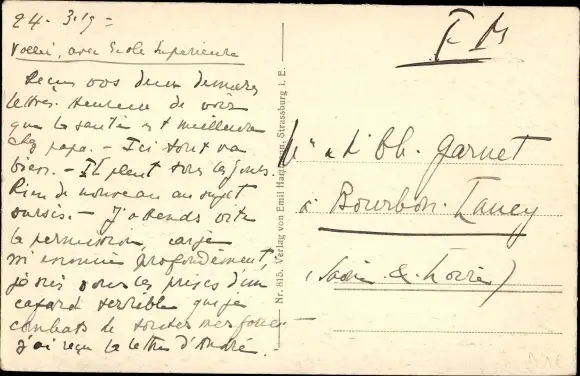 24-3-19=
Voilà, avec Ecole Supérieure
Reçu vos deux dernières
lettres. Heureux de voir
que la santé est meilleure
chez papa. - Ici tout va
bien. - Il pleut tous les jours.
Rien de nouveau au sujet
sursis. - J'attends vite
la permission, car je
m'ennuie profondément,
je suis sous les prises d'un
cafard terrible que je
combats de toutes mes forces
j'ai reçu la lettre d'André.
Nr. 815. Verlag von Emil Hartmann, Strassburg i. E.
F M
Garnet
à Bourbon-Lancy
(Saône & Loire)